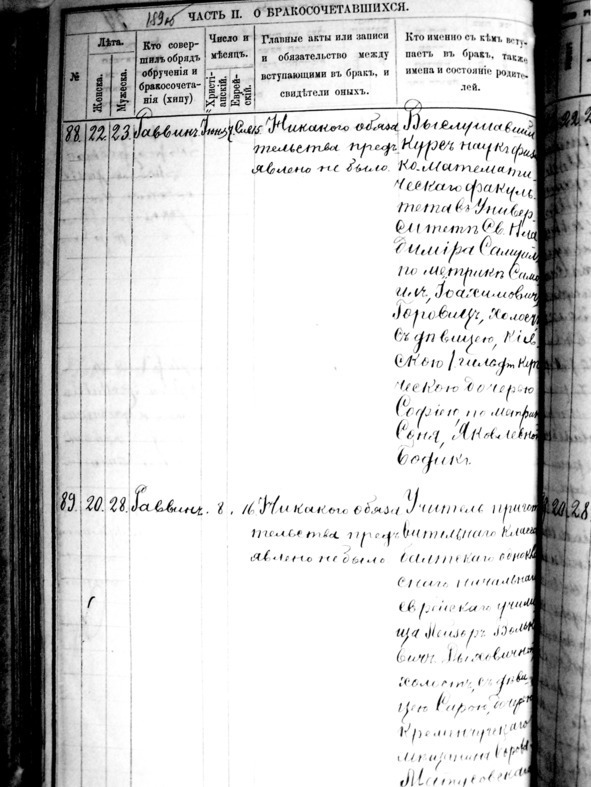 ЧАСТЬ II. О БРАКОСОЧЕТАВШИХСЯ.
№
Лѣта.
Женска.
Мужеска.
Кто совер-
шилъ обрядъ
обрученія и
бракосочета-
нія (хипу)
Число и
мѣсяцъ.
Христі-
анскій.
Еврей-
скій.
Главные акты или записи
и обязательство между
вступающими въ бракъ, и
свидѣтели оныхъ.
Кто именно съ кѣмъ всту-
паетъ въ бракъ, также
имена и состояніе родите-
лей.
88. 22. 23. Раввинъ.
Никакого обяза
тельства предъ
явлено не было.
Выслушавшій
курсъ наукъ физи
ко математи-
ческаго факуль-
тета въ Универ-
ситетѣ Св. Вла
диміра Самуилъ
по метрикѣ Само
илъ, Іоахимовичъ
Горовицъ, холостъ
съ дѣвицею, Кіев-
скою 1 гильд. купе
ческою дочерью
Софіею, по метрик
Соня, Яковлевною
Бодикъ.
89. 20. 28. Раввинъ. 8. 16
Никакого обяза
тельства предъ
явлено не было
Учитель пригот
вительнаго класса
балтскаго
начальнаго
еврейскаго учили
ща Лейзоръ Вольк
вичъ
холостъ, съ дѣви-
цею дочерью
Кременчугскаго